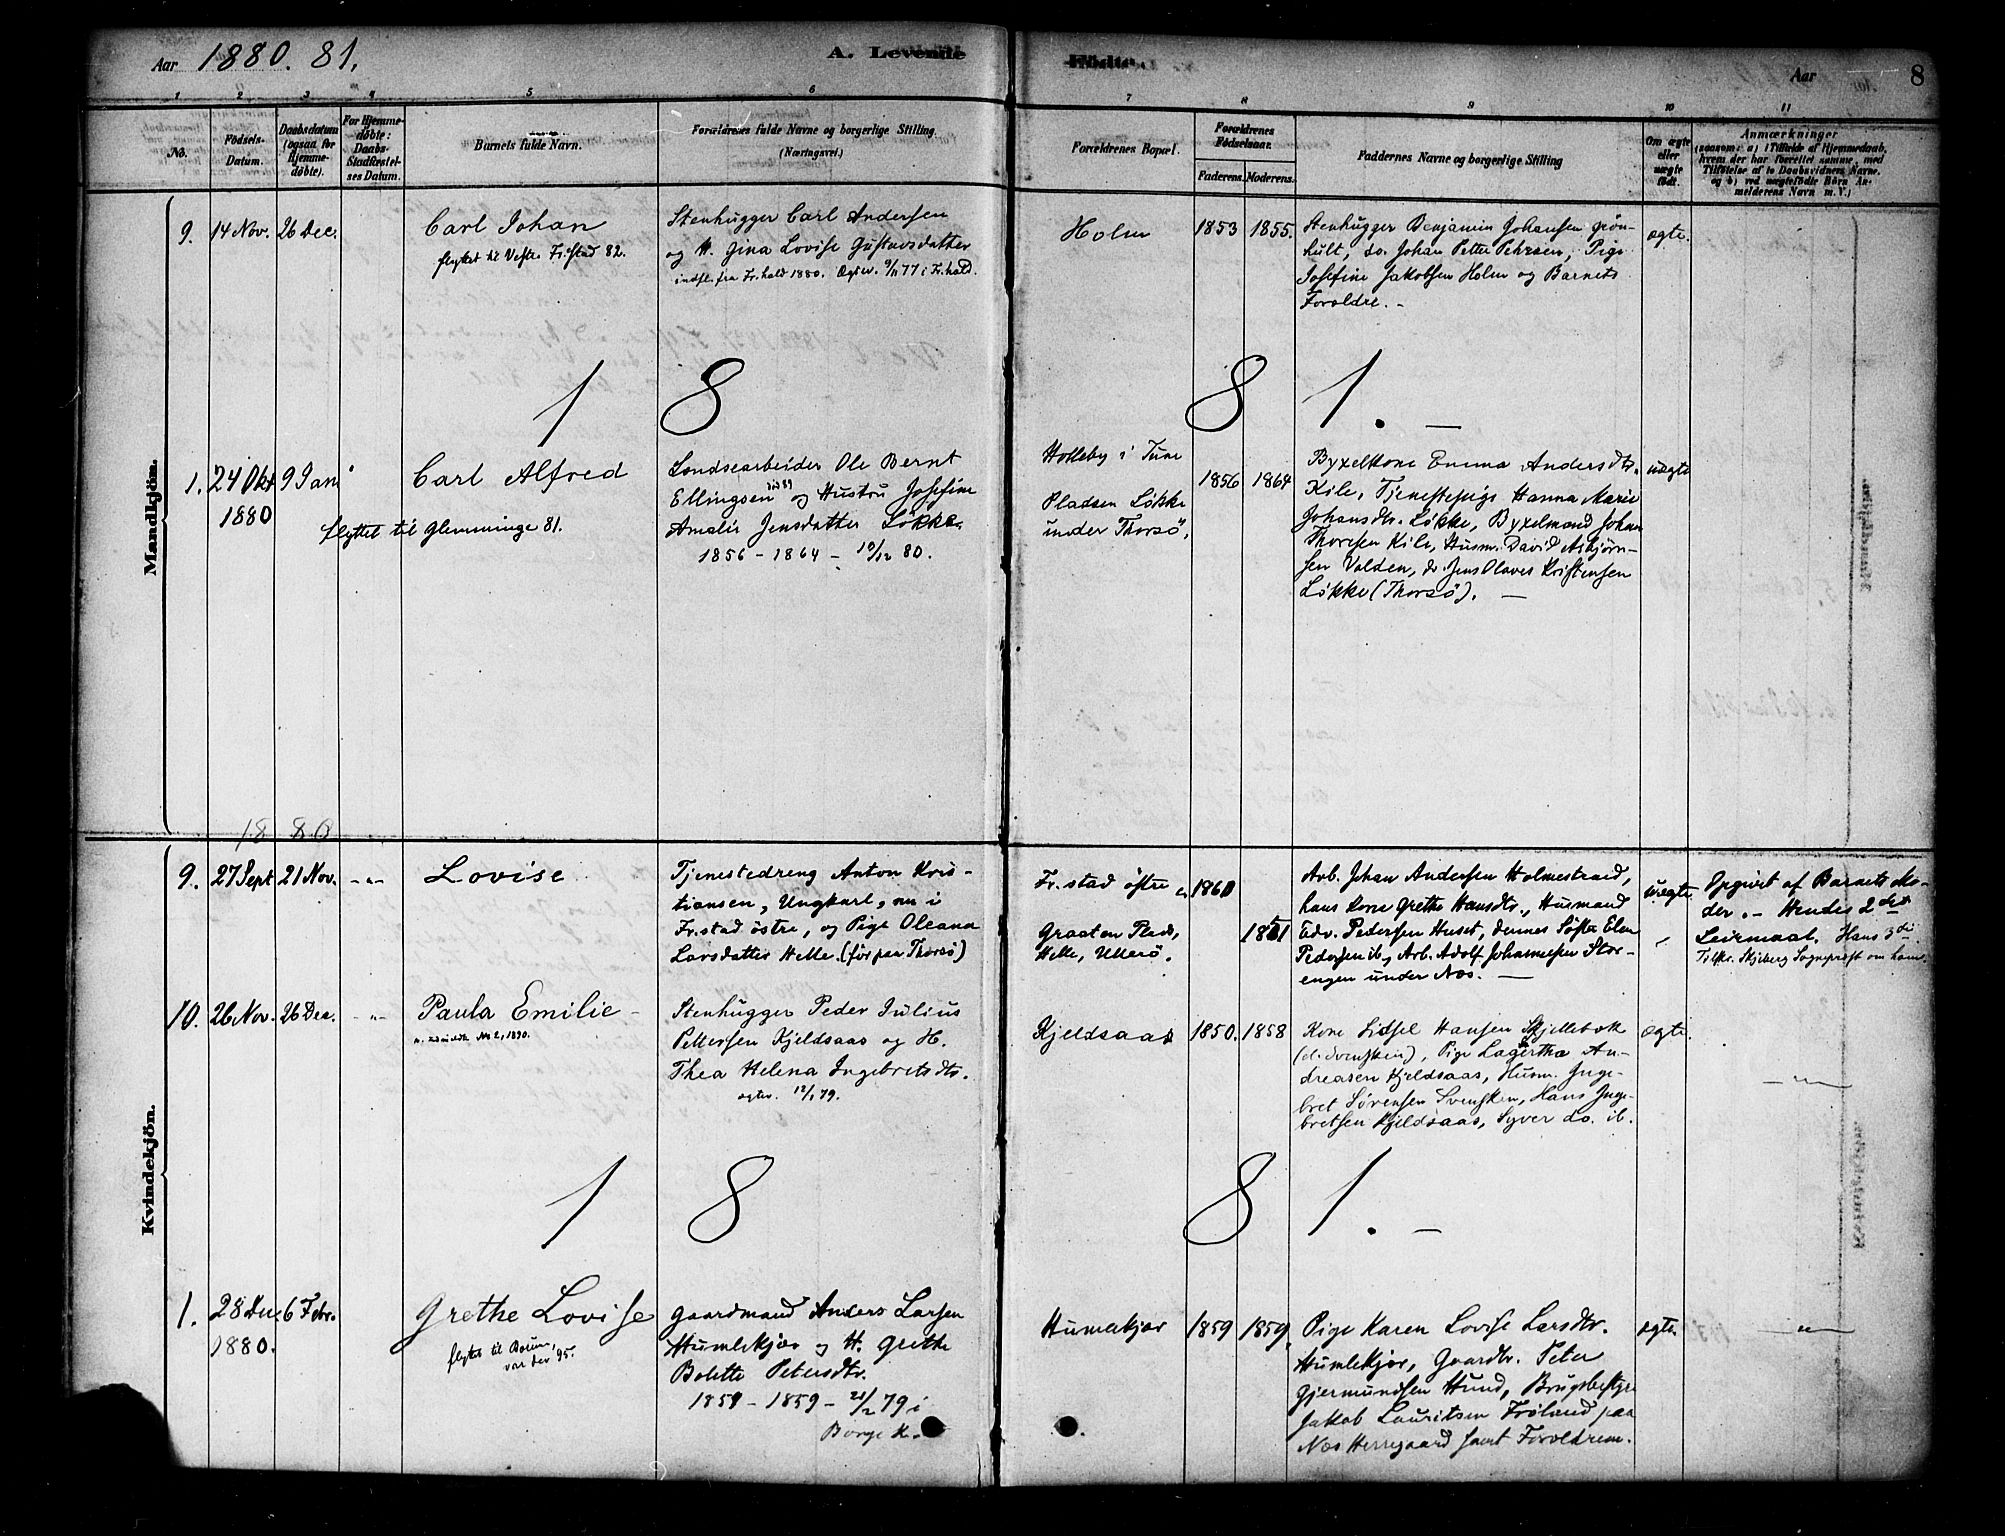 Aar 1880. 81.
A. Levende
Fødte.
Aar
8
1 2 3 4 5 6 7 8 9 10 11
No.
Fødsels-
Datum.
Daabsdatum
(ogsaa for
Hjemme-
døbte).
For Hjemme-
døbte:
Daabs-
Stadfæstel-
ses Datum.
Barnets fulde Navn.
Forældrenes fulde Navne og borgerlige Stilling.
(Næringsvei.)
Forældrenes Bopæl.
Forældrenes
Fødselsaar.
Faderens. Moderens.
Faddernes Navne og borgerlige Stilling
Om ægte
eller
uægte
født.
Anmærkninger
(saasom: a) i Tilfælde af Hjemmedaab,
hvem der har forrettet samme, med
Tilføielse af to Daabsvidners Navne,
og b) ved uægtefødte Børn An-
melderens Navn m. V.)
Mandkjön.
9. 14 Nov. 26 Dec.
Carl Johan
flyttet til Vestre Fr.stad 82.
Stenhugger Carl Andersen
og H. Gina Lovise Gustavsdatter
indfl. fra Fr.hald 1880. Ægtev. 9/11 77 i Fr.hald.
Holm
1853 1855.
Stenhugger Benjamin Johansen Grøn-
hult, do. Johan Petter Pehrsen, Pige
Josefine Jakobsen Holm og Barnets
Forældre. -
ægte.
1 8 8 1. -
1. 24 Okt 9 Jan
1880
Carl Alfred
flyttet til Glemminge 81.
Londsearbeider Ole Bernt
Ellingsen og Hustru Josefine
Amalie Jensdatter Løkke.
1856 - 1864 - 19/12 80.
Holleby i Tune
Pladsen Løkke
under Thorsø.
1856 1864
Byxelkone Emma Andersdtr.
Kile, Tjenestepige Hanna Marie
Johansdtr. Løkke, Byxelmand Johan
Thoresen Kile, Husm. David Asbjørn-
sen Volden, do. Jens Olaves Kristensen
Løkke (Thorsø). -
uægte
18 80
Kvindekjön.
9. 27 Sept 21 Nov. -"-
Lovise
Tjenestedreng Anton Kris-
tiansen, Ungkarl, nu i
Fr.stad östre, og Pige Oleana
Larsdatter Helle. (før paa Thorsø)
Fr.stad østre
Graaten Plads,
Helle, Ullerö.
1860
1861
Arb. Johan Andersen Holmestrand,
hans Kone Grethe Hansdtr., Husmand
Edv. Pedersen Huset, dennes Søster Elen
Pedersen ib., Arb. Adolf Johannesen Stor-
engen under Næs. -
uægte
Opgivet af Barnets Mo-
der. - Hendes 2det
Leiermaal. Hans 3di.
Tilskr. Skjeberg Sogneprest om ham.
10. 26 Nov. 26 Dec. -"-
Paula Emilie -
Stenhugger Peder Julius
Pettersen Kjeldsaas og H.
Thea Helena Ingebretsdtr.
ægtev. 12/1 79.
Kjeldsaas
1850. 1858
Kone Lidsel Hansen Skjellebæk
(d. Svensken), Pige Lagertha An-
dreasen Kjeldsaas, Husm. Inge-
bret Sørensen Svensken, Hans Inge-
bretsen Kjeldsaas, Syver do. ib.
ægte.
-"-
1 8 8 1. -
1. 28 Dec. 6 Febr.
1880.
Grethe Lovise
flyttet til Borum,
var der 95.
Gaardmand Anders Larsen
Humlekjær og H. Grethe
Bolette Petersdtr.
1859 - 1859 - 21/2 79 i
Borge K.
Humlekjær
1859 1859
Pige Karen Lovise Larsdtr.
Humlekjær, Gaardbr. Peter
Gjermundsen Hund, Brugsbestyrer
Jakob Lauritsen Frøland paa
Næs Herregaard samt Forældrene.
ægte.
-"-